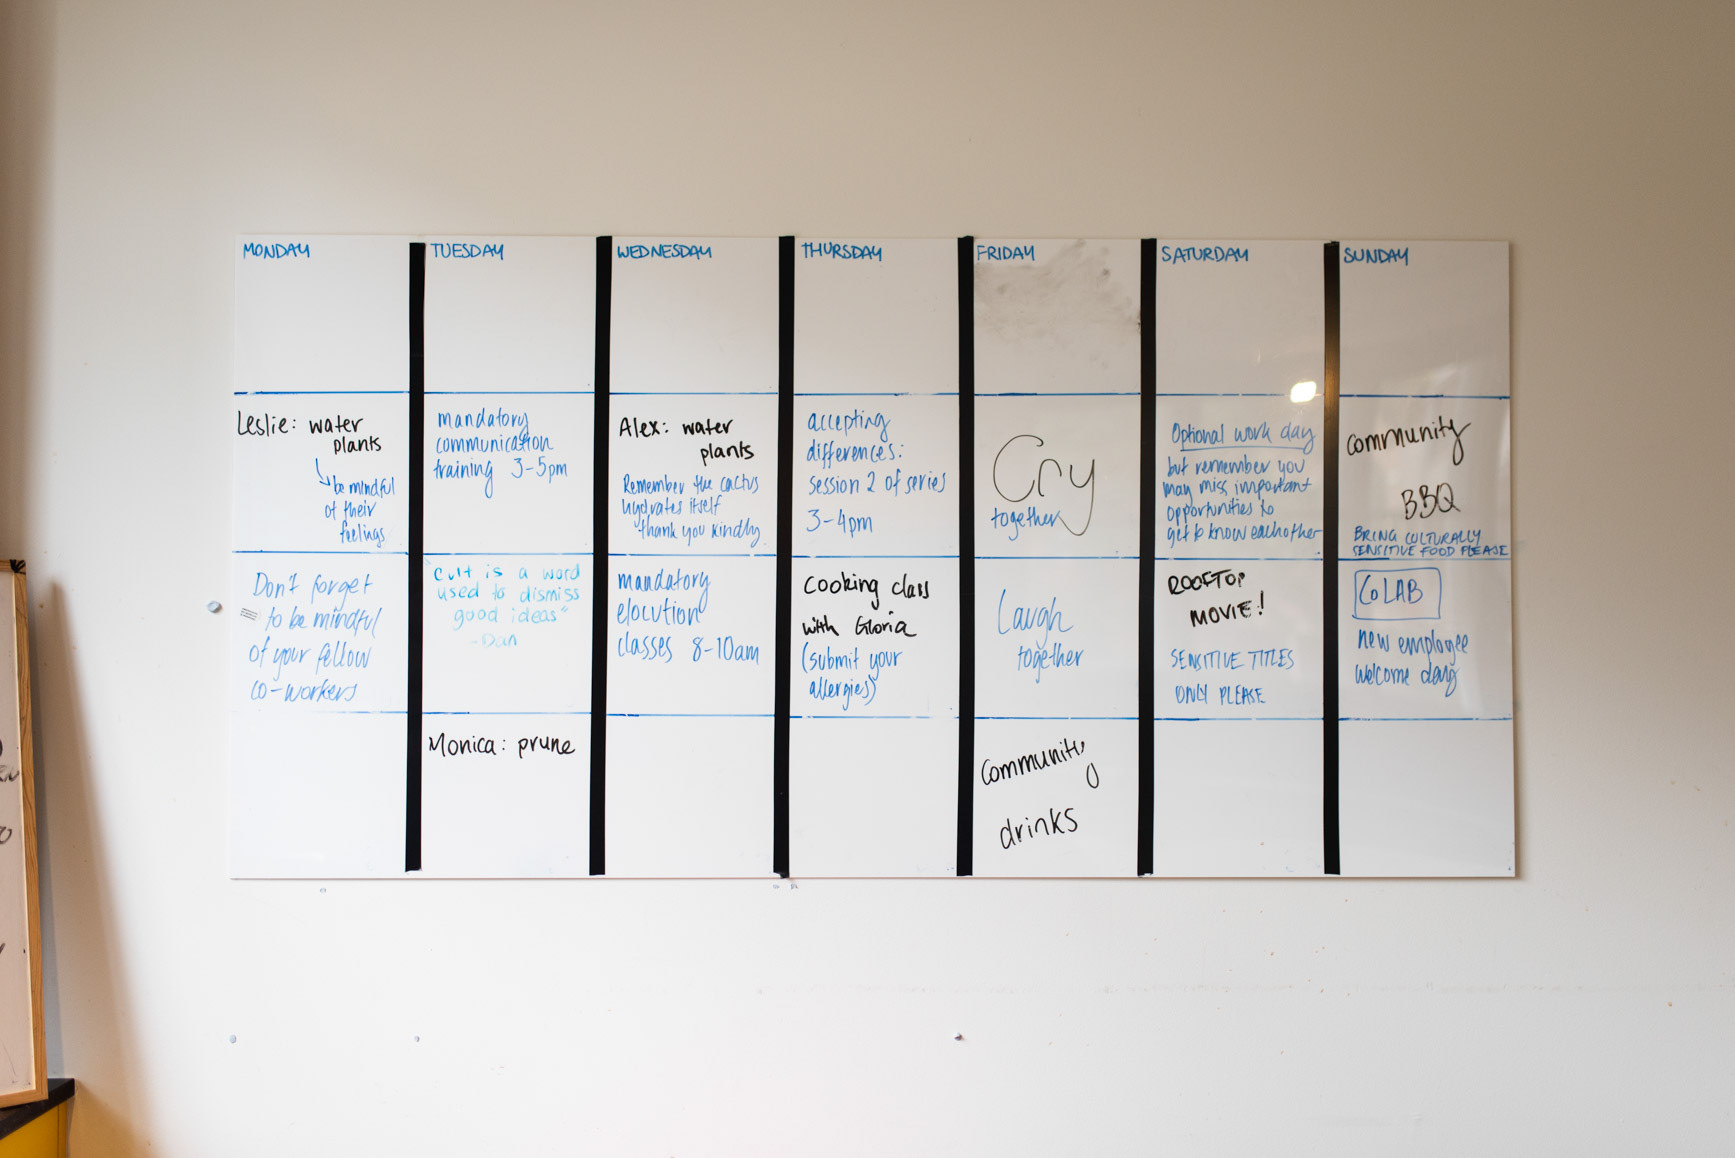 MONDAY
TUESDAY
WEDNESDAY
THURSDAY
FRIDAY
SATURDAY
SUNDAY
Leslie: water
plants
be mindful
of their
feelings
mandatory
communication
training 3-5pm
Alex: water
plants
Remember the cactus
hydrates itself
thank you kindly
accepting
differences:
session 2 of series
3-4pm
Cry
together
Optional work day
but remember you
may miss important
opportunities to
get to know eachother
community
BBQ
BRING CULTURALLY
SENSITIVE FOOD PLEASE
Don't forget
to be mindful
of your fellow
co-workers
"Cult is a word
used to dismiss
good ideas"
-Dan
mandatory
elocution
classes 8-10am
Cooking class
with Gloria
(submit your
allergies)
Laugh
together
ROOFTOP
MOVIE!
SENSITIVE TITLES
ONLY PLEASE
CoLAB
new employee
welcome day
Monica: prune
community
drinks